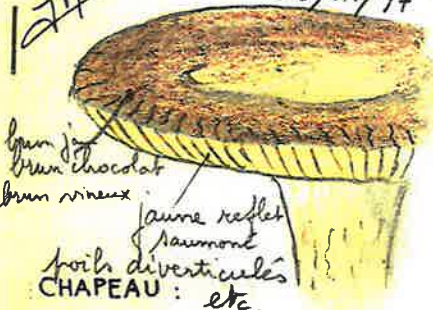 brun
brun chocolat
brun vineux
jaune reflet
saumoné
poils diverticulés
CHAPEAU :
etc